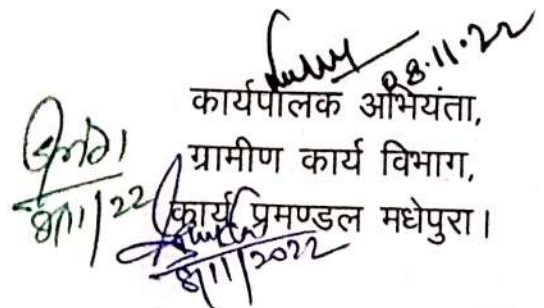 08.11.22
कार्यपालक अभियंता,
ग्रामीण कार्य विभाग,
8/11/22
कार्य प्रमण्डल मधेपुरा।
8/11/2022